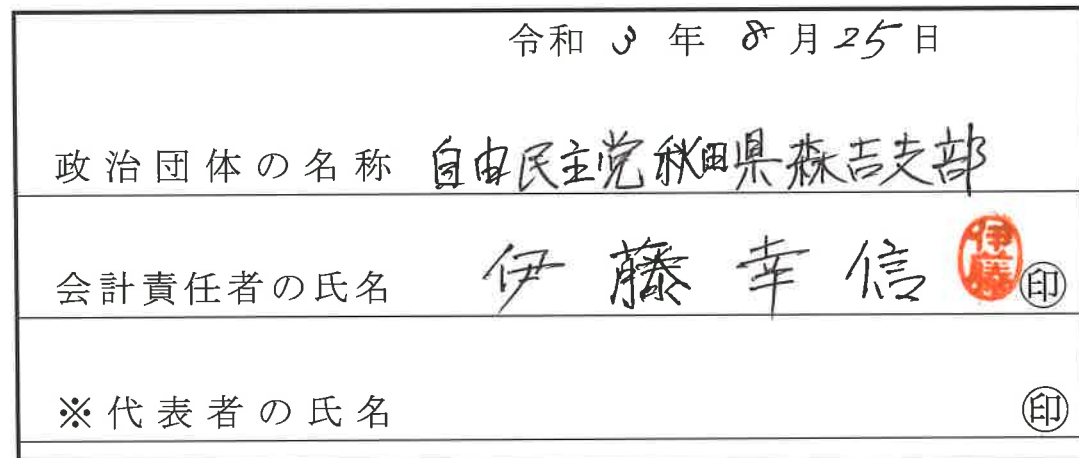 令和 3 年 8 月 25 日
政治団体の名称 自由民主党秋田県森吉支部
会計責任者の氏名 伊藤幸信 伊藤 ㊞
※代表者の氏名 ㊞